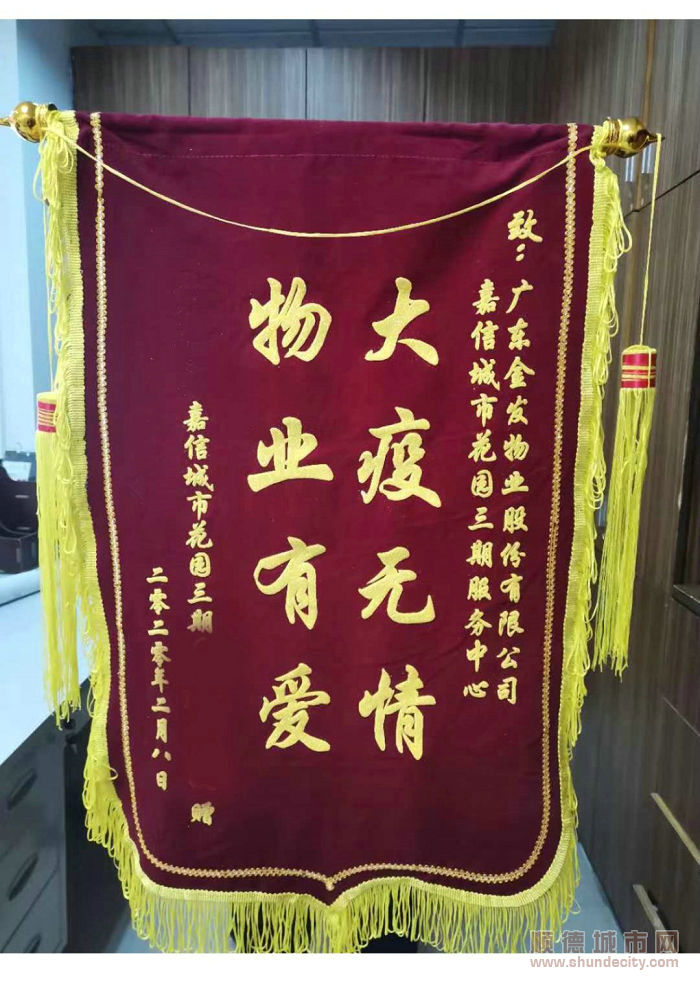 致：广东金发物业股份有限公司
嘉信城市花园三期服务中心
大疫无情
物业有爱
嘉信城市花园三期
赠
二零二零年二月八日
顺德城市网
www.shundecity.com